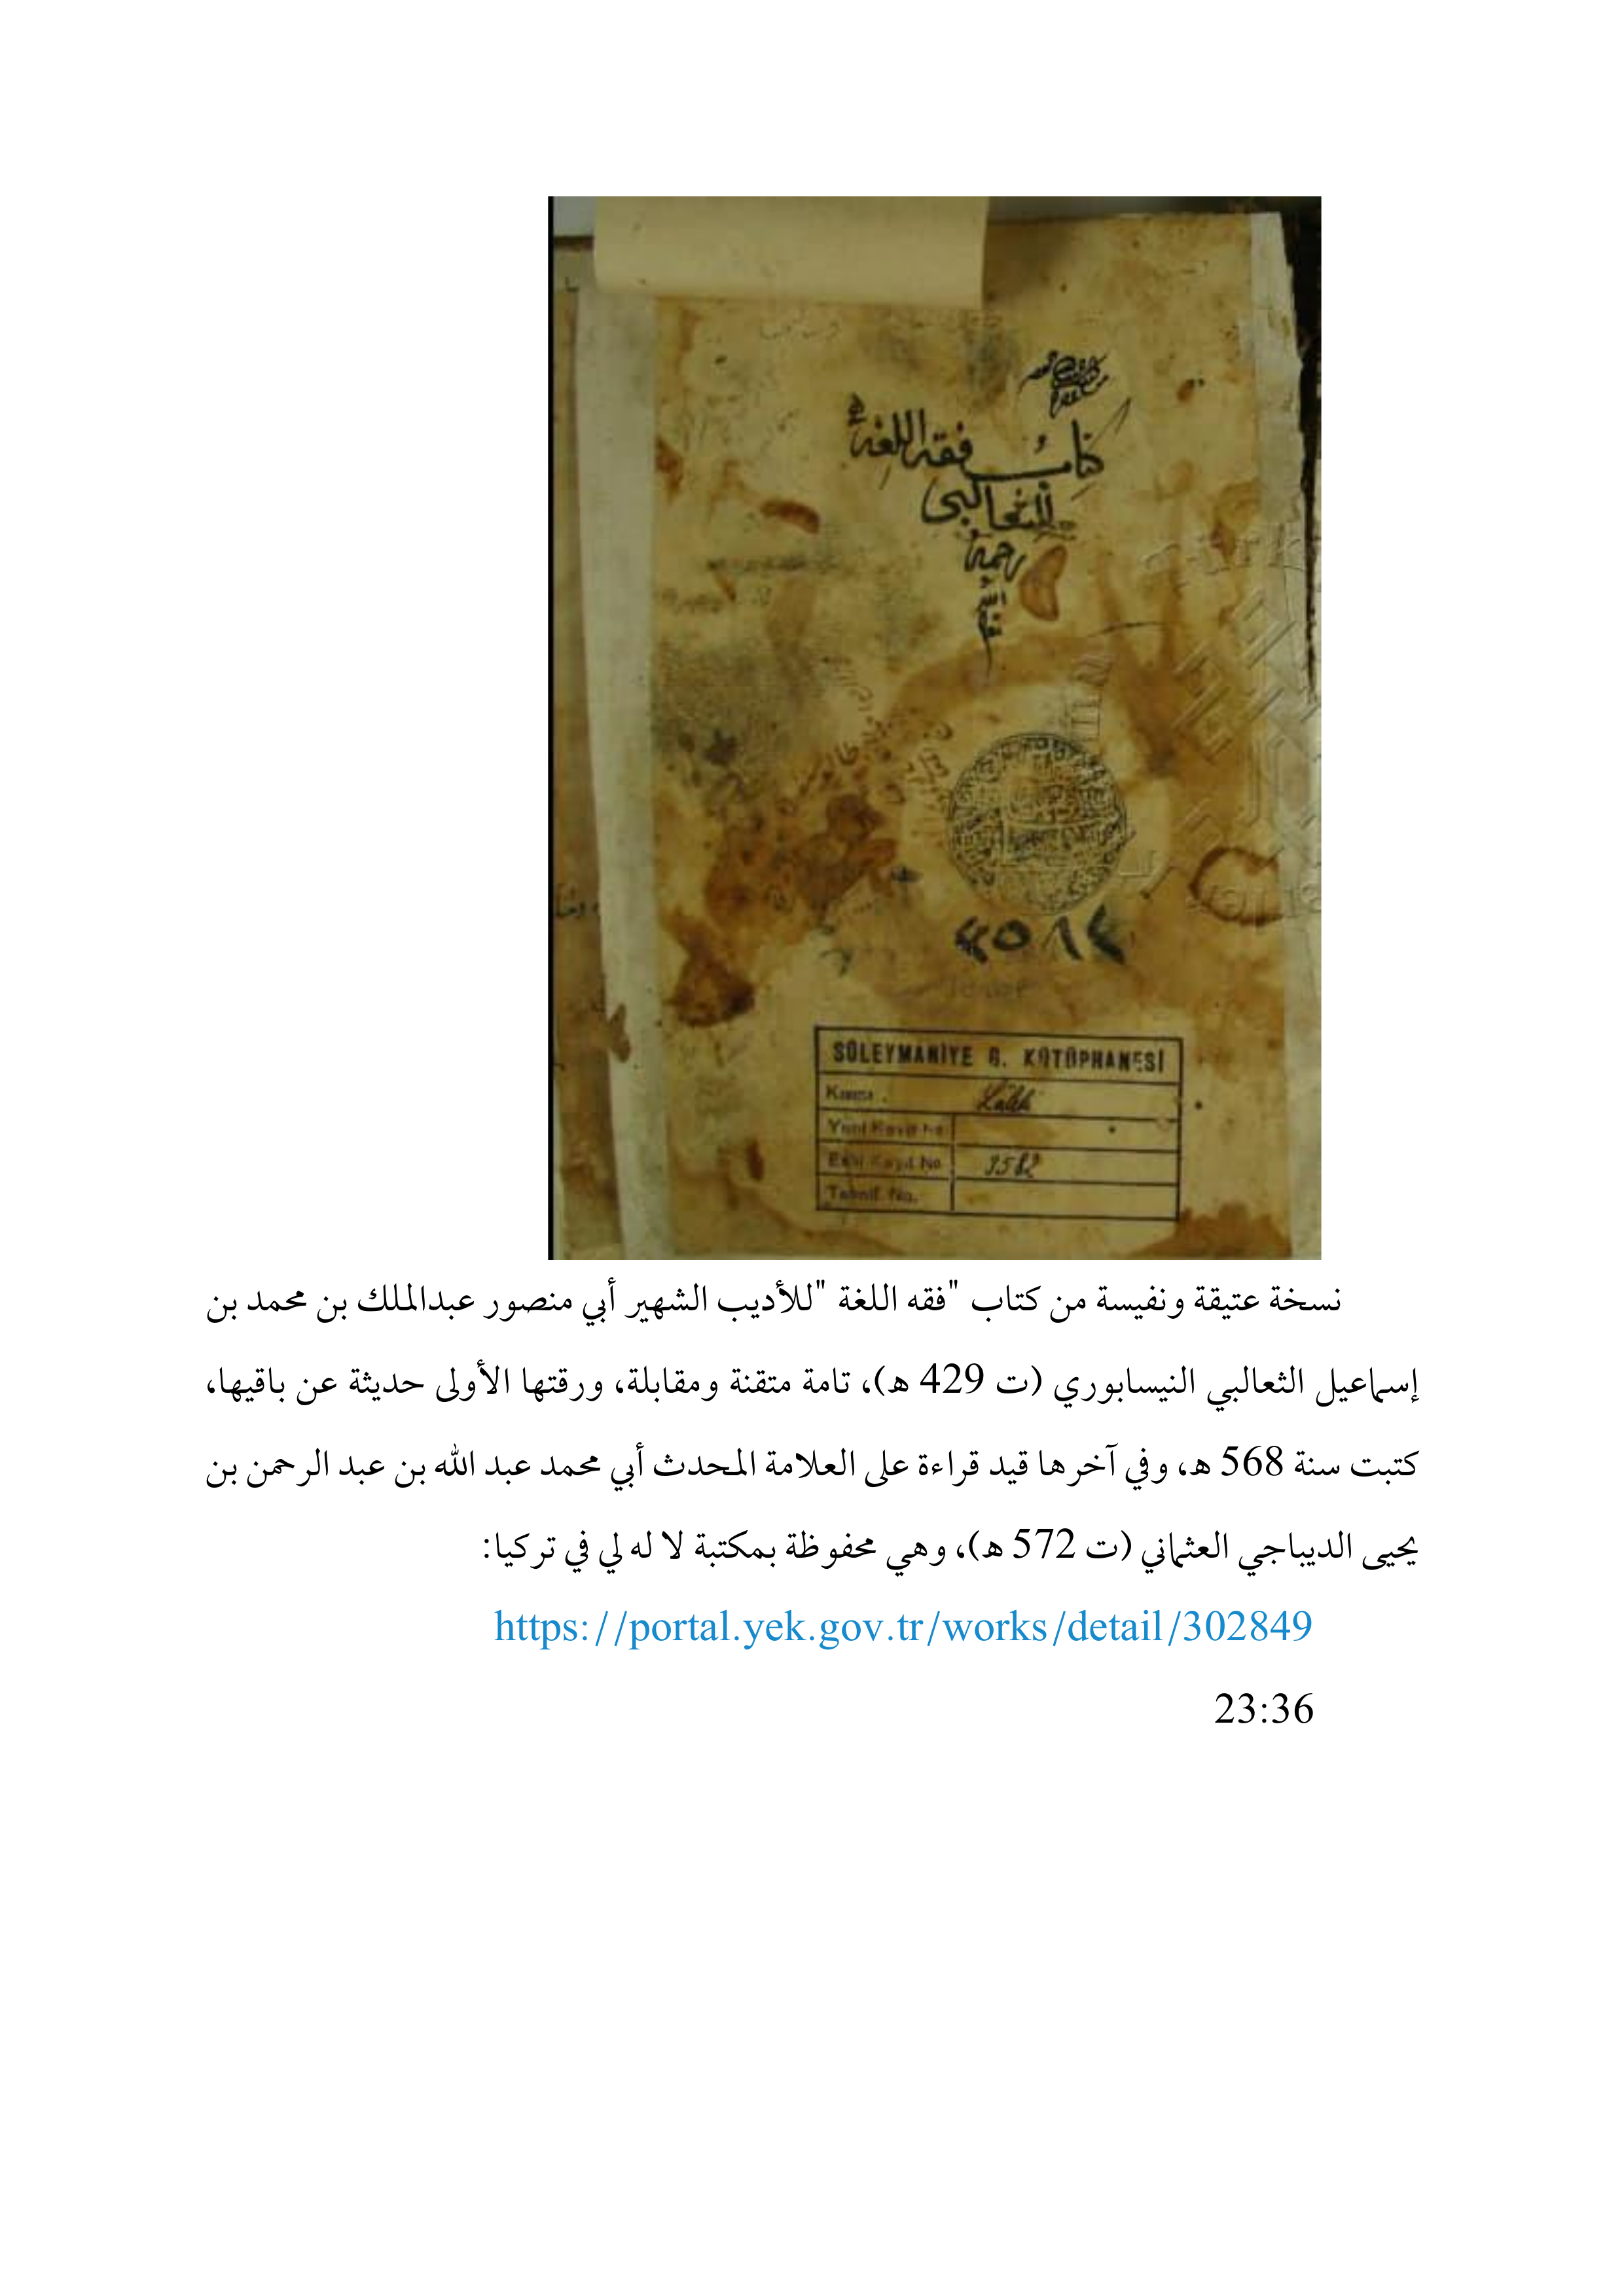 كتاب فقه اللغة
للثعالبي
رحمه
الله
SÜLEYMANİYE G. KÜTÜPHANESİ
Kısmı Laleli
Yeni Kayıt No.
Eski Kayıt No. 3582
Tasnif No.
نسخة عتيقة ونفيسة من كتاب "فقه اللغة "للأديب الشهير أبي منصور عبدالملك بن محمد بن
إسماعيل الثعالبي النيسابوري (ت 429 ه)، تامة متقنة ومقابلة، ورقتها الأولى حديثة عن باقيها،
كتبت سنة 568 ه، وفي آخرها قيد قراءة على العلامة المحدث أبي محمد عبد الله بن عبد الرحمن بن
يحيى الديباجي العثماني (ت 572 ه)، وهي محفوظة بمكتبة لا له لي في تركيا:
https://portal.yek.gov.tr/works/detail/302849
23:36